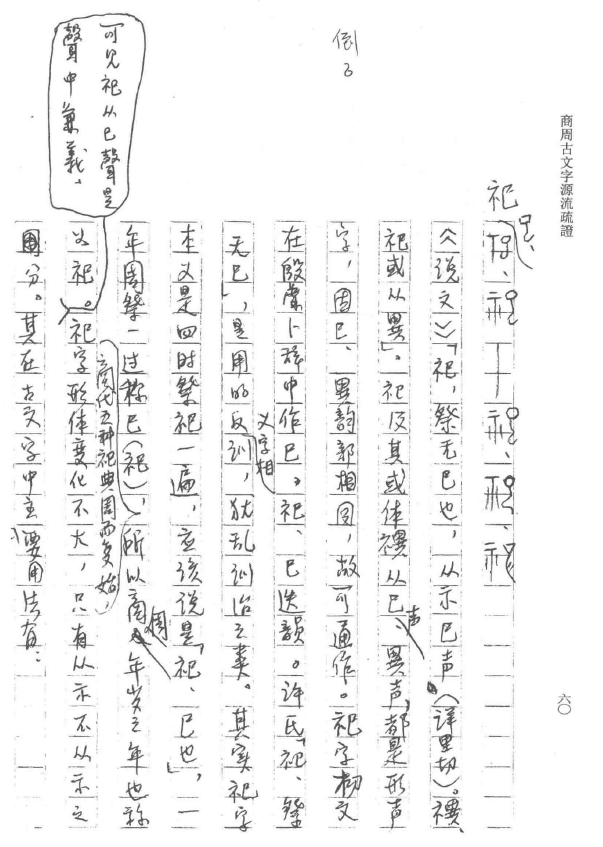 商周古文字源流疏證
六〇
倒了
祀
《说文》「祀，祭无已也，从示巳声（详里切）。禩，
祀或从異」。祀及其或体禩从巳、異声，都是形声
字，因巳、異韵部相同，故可通作。祀字初文
在殷虚卜辞中作巳。祀、巳迭韻。许氏「祀、祭
无已」，是用的反训，犹乱训治之类。其实祀字
义字相
本义是四时祭祀一遍，应该说是「祀、已也」，一
年周祭一过称巳（祀），所以商周年岁之年也称
商代五种祀典周而复始，
义祀。祀字形体变化不大，只有从示不从示之
可见祀从巳聲是
聲中兼義、
分。其在古文字中主要用法有：